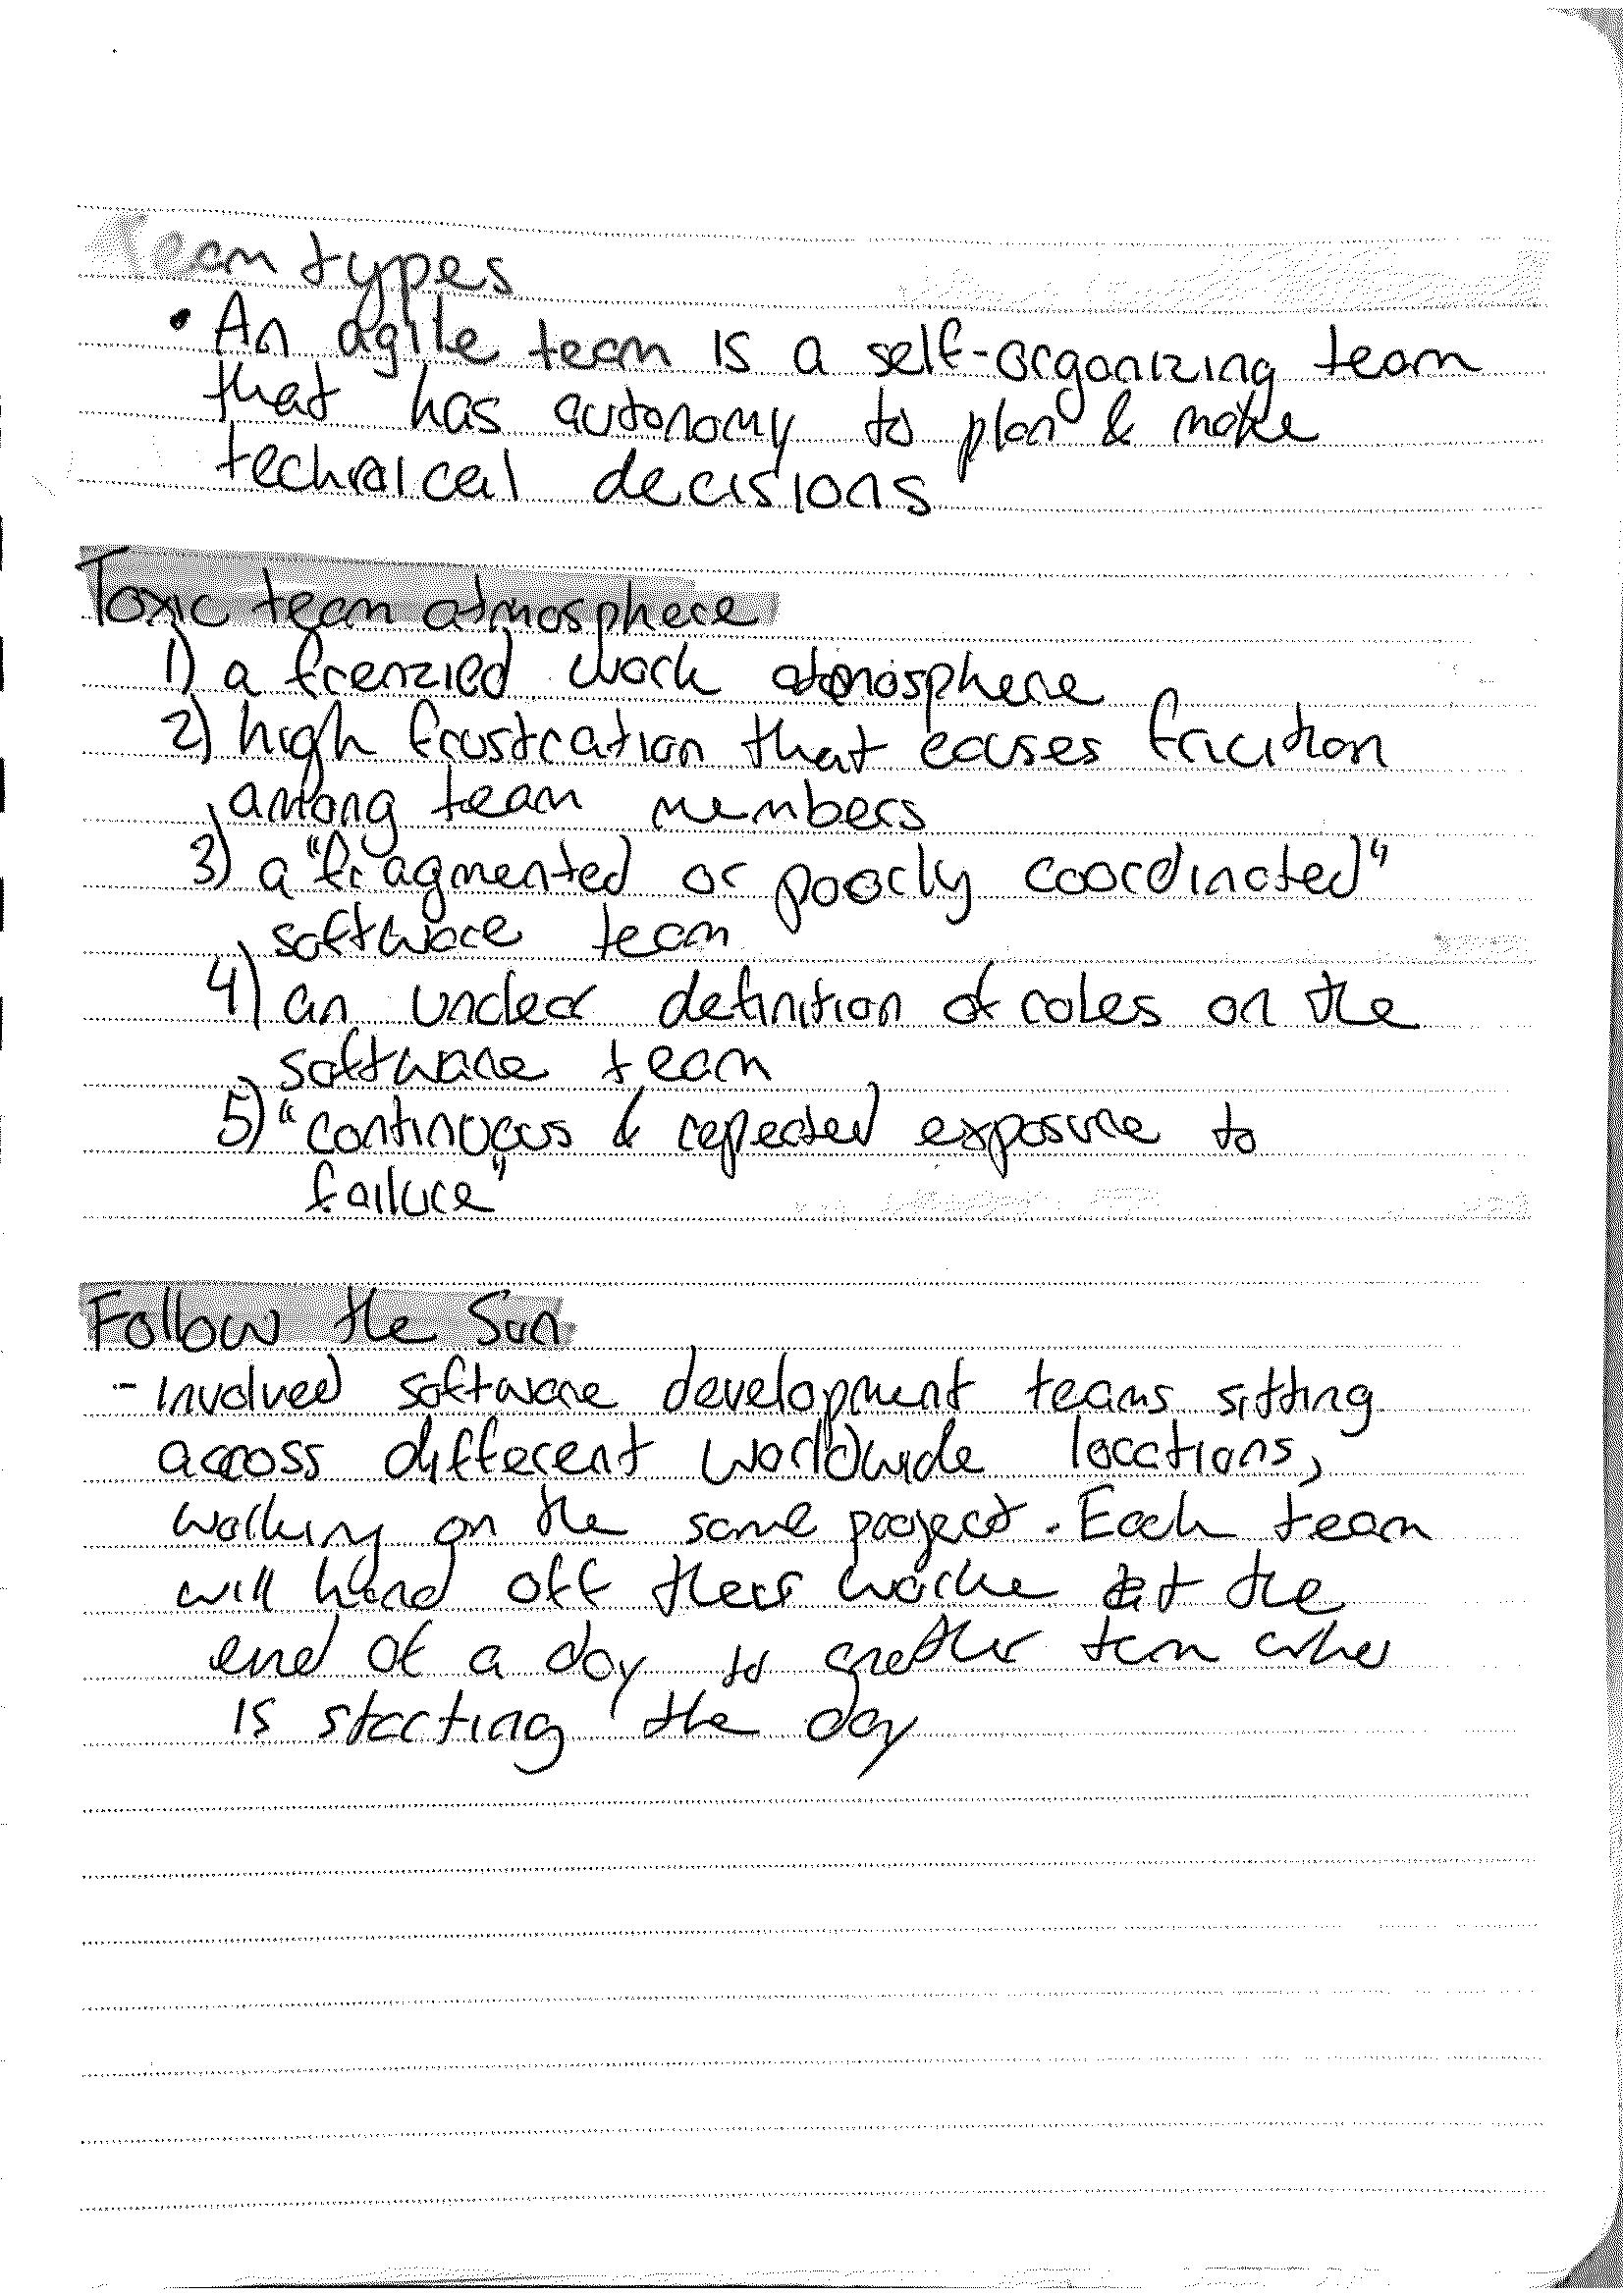 Team types
• An agile team is a self-organizing team
that has autonomy to plan & make
technical decisions
Toxic team atmosphere
1) a frenzied work atmosphere
2) high frustration that causes friction
among team members
3) a "fragmented or poorly coordinated"
software team
4) an unclear definition of roles on the
software team
5) "continuous & repeated exposure to
failure"
Follow the Sun
- involved software development teams sitting
across different worldwide locations,
working on the same project. Each team
will hand off their worke at the
end of a day to another team who
is starting the day